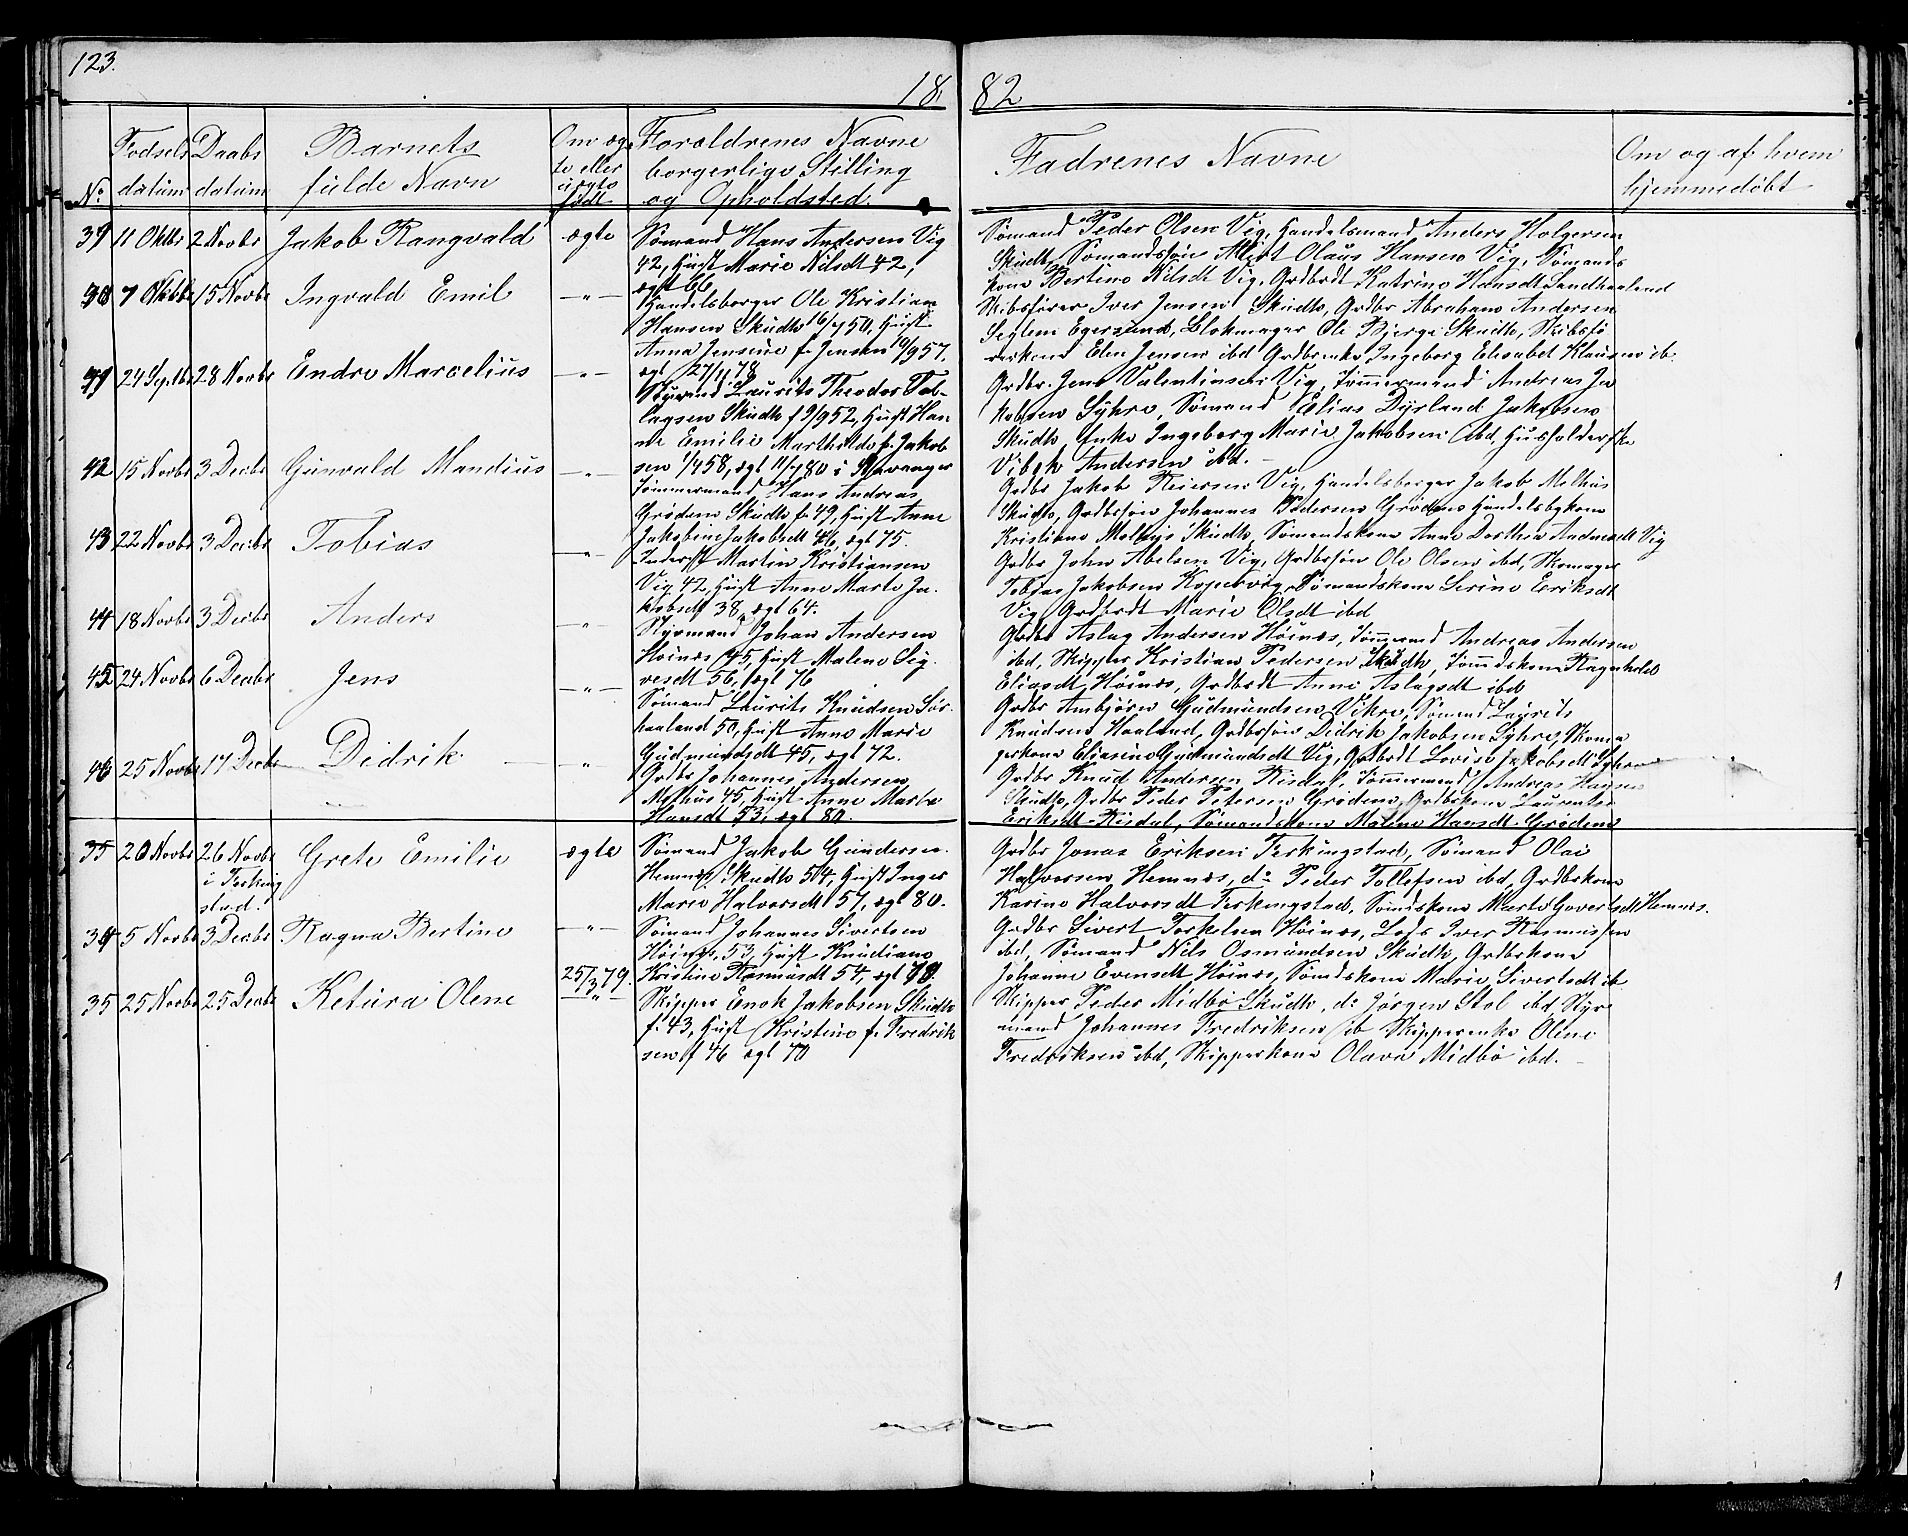 123.
18 82
No
Fodsels datum
Daabs datum
Barnets fulde Navn
Om æg te eller uægte født
Foraldrenes Navne borgerlige Stilling og Opholdsted.
Fadrenes Navne
Om og af hvem hjemmedøbt
39 11 Oktbr 2 Novbr Jakob Rangvald ægte
Sømand Hans Andersen Vig
42, Hust Marie Nilsdt 42,
ægt 66
Sømand Peder Olsen Vig, Handelsmand Anders Holgersen
Skudh, Sømandssøn Olaus Hansen Vig, Sømands
kone Bertine Nilsdt Vig, Grdbrdt Katrine Hansdt Sandhaaland
7 Oktbr 15 Novbr Ingvald Emil —"—
Handelsborger Ole Kristian
Hansen Skudh 16/4 50, Hust
Anna Jensine f. Jensen 10/9 57.
ægt 27/4 78
Skibsfører Iver Jensen Skudh, Grdbr Abraham Andersen
Seglem Egersund, Blokmager Ole Bjerge Skudh, Skibsfø
rerkone Elen Jensen ibd Grdbrenke Ingeborg Elisabet Klausen ib.
24 Septbr 28 Novbr Endre Marcelius —"—
Styrmd Laurits Theodor Tol-
lagsen Skudh f 9/9 52, Hust Han-
ne Emilie Marthilde f. Jakob
sen 1/4 58, ægt 11/4 80 i Stavanger
Grdbr. Jens Valentinsen Vig, Tømmermand Andreas Ja
kobsen Syhre, Sømand Elias Dyrland Jakobsen
Skudh, Enke Ingeborg Marie Jakobsen ibd, Husholderske
Vibek Andersen ibd.
42 15 Novbr 3 Decbr Gunvald Mandius —"—
Tømmermand Hans Andreas
Grødem Skudh f. 49, Hust Anne
Jakobine Jakobsdt 46, ægt 75.
Grdbr Jakob Reiersen Vig, Handelsborger Jakob Melhus
Skudh, Grdbrsøn Johannes Pedersen Grødem Handelsbgkone
Kristiane Melhus Skudh, Sømandskone Anne Dorthea Andreasdt Vig
43 22 Novbr 3 Decbr Tobias —"—
Inderst Martin Kristiansen
Vig 42, Hust Anne Marte Ja-
kobsdt 38, ægt 64.
Grdbr John Abelsen Vig, Grdbrsøn Ole Olsen ibd, Skomager
Tobias Jakobsen Kopervig, Sømandskone Serine Eriksdt
Vig Grdbrdt Marie Olsdt ibd
44 18 Novbr 3 Decbr Anders —"—
Styrmand Johan Andersen
Høinæs 45, Hust Malene Sig-
vesdt 56, ægt 76
Grdbr Aslag Andersen Høinæs, Tømmermd Andreas Andersen
ibd, Skipper Kristian Pedersen Skudh, Tømmdskone Ragnhild
Eliasdt Høinæs, Grdbrdt Anne Aslagsdt ibd
45 24 Novbr 6 Decbr Jens —"—
Sømand Laurits Knudsen Sør-
haaland 50, Hust Anne Marie
Gudmundsdt 45, ægt 72.
Grdbr Ambjørn Gudmundsen Vikre, Sømand Laurits
Knudsen Haaland, Grdbrsøn Didrik Jakobsen Syhre, Skoma
gerkone Eliasine Gudmundsdt Vig, Grdbrdt Lovise Jakobsdt Syhre
46 25 Novbr 17 Decbr Didrik —"—
Grdbr Johannes Andersen
Melhus 45, Hust Anne Marte
Hansdt 53, ægt 80.
Grdbr Knud Andersen Risdal, Tømmermand Andreas Hansen
Skudh, Grdbr Peder Petersen Grødem, Grdbrkone Laurentse
Eriksdt Risdal, Sømandskone Malene Hansdt Grødem
20 Novbr 26 Novbr i Ferking stad. Grete Emilie ægte
Sømand Jakob Gundersen
Hemnes, Skudh 54, Hust Inger
Marie Halvorsdt 57, ægt 80.
Grdbr Jonas Eriksen Ferkingstad, Sømand Olai
Halvorsen Hemnæs, do Peder Tollefsen ibd, Grdbrkone
Karine Halvorsdt Ferkingstad, Sømdskone Marte Govertsdt Hemnes.
34 5 Novbr 3 Decbr Ragna Bertine —"—
25/3 79.
Sømand Johannes Sivertsen
Høinæs, 53, Hust Knudiane
Kristine Rasmusdt 54, ægt 79
Grdbr Sivert Torkelsen Høinæs, Lods Iver Rasmussen
ibd, Sømand Nils Osmundsen Skudh, Grdbrkone
Johanne Evensdt Høinæs, Sømdskone Marie Sivertsdt ib
35 25 Novbr 25 Decbr Ketura Olene —"—
Skipper Enok Jakobsen Skudh
f. 43, Hust Kristine f. Fredrik
sen f 46 ægt 70
Skipper Peder Midbø Skudh, do Jørgen Stol ibd, Styr
mand Johannes Fredriksen ib Skipperenke Oline
Fredriksen ibd, Skipperkone Olava Midbø ibd.